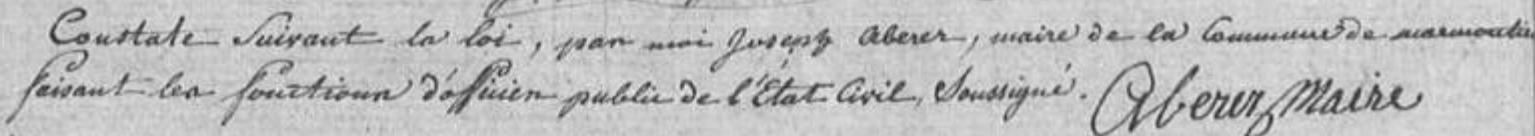 Constaté Suivant la loi, par moi Joseph Aberer, maire de la Commune de marmoutier
faisant les fonctions d'officier public de l'Etat Civil, Soussigné. Aberer Maire